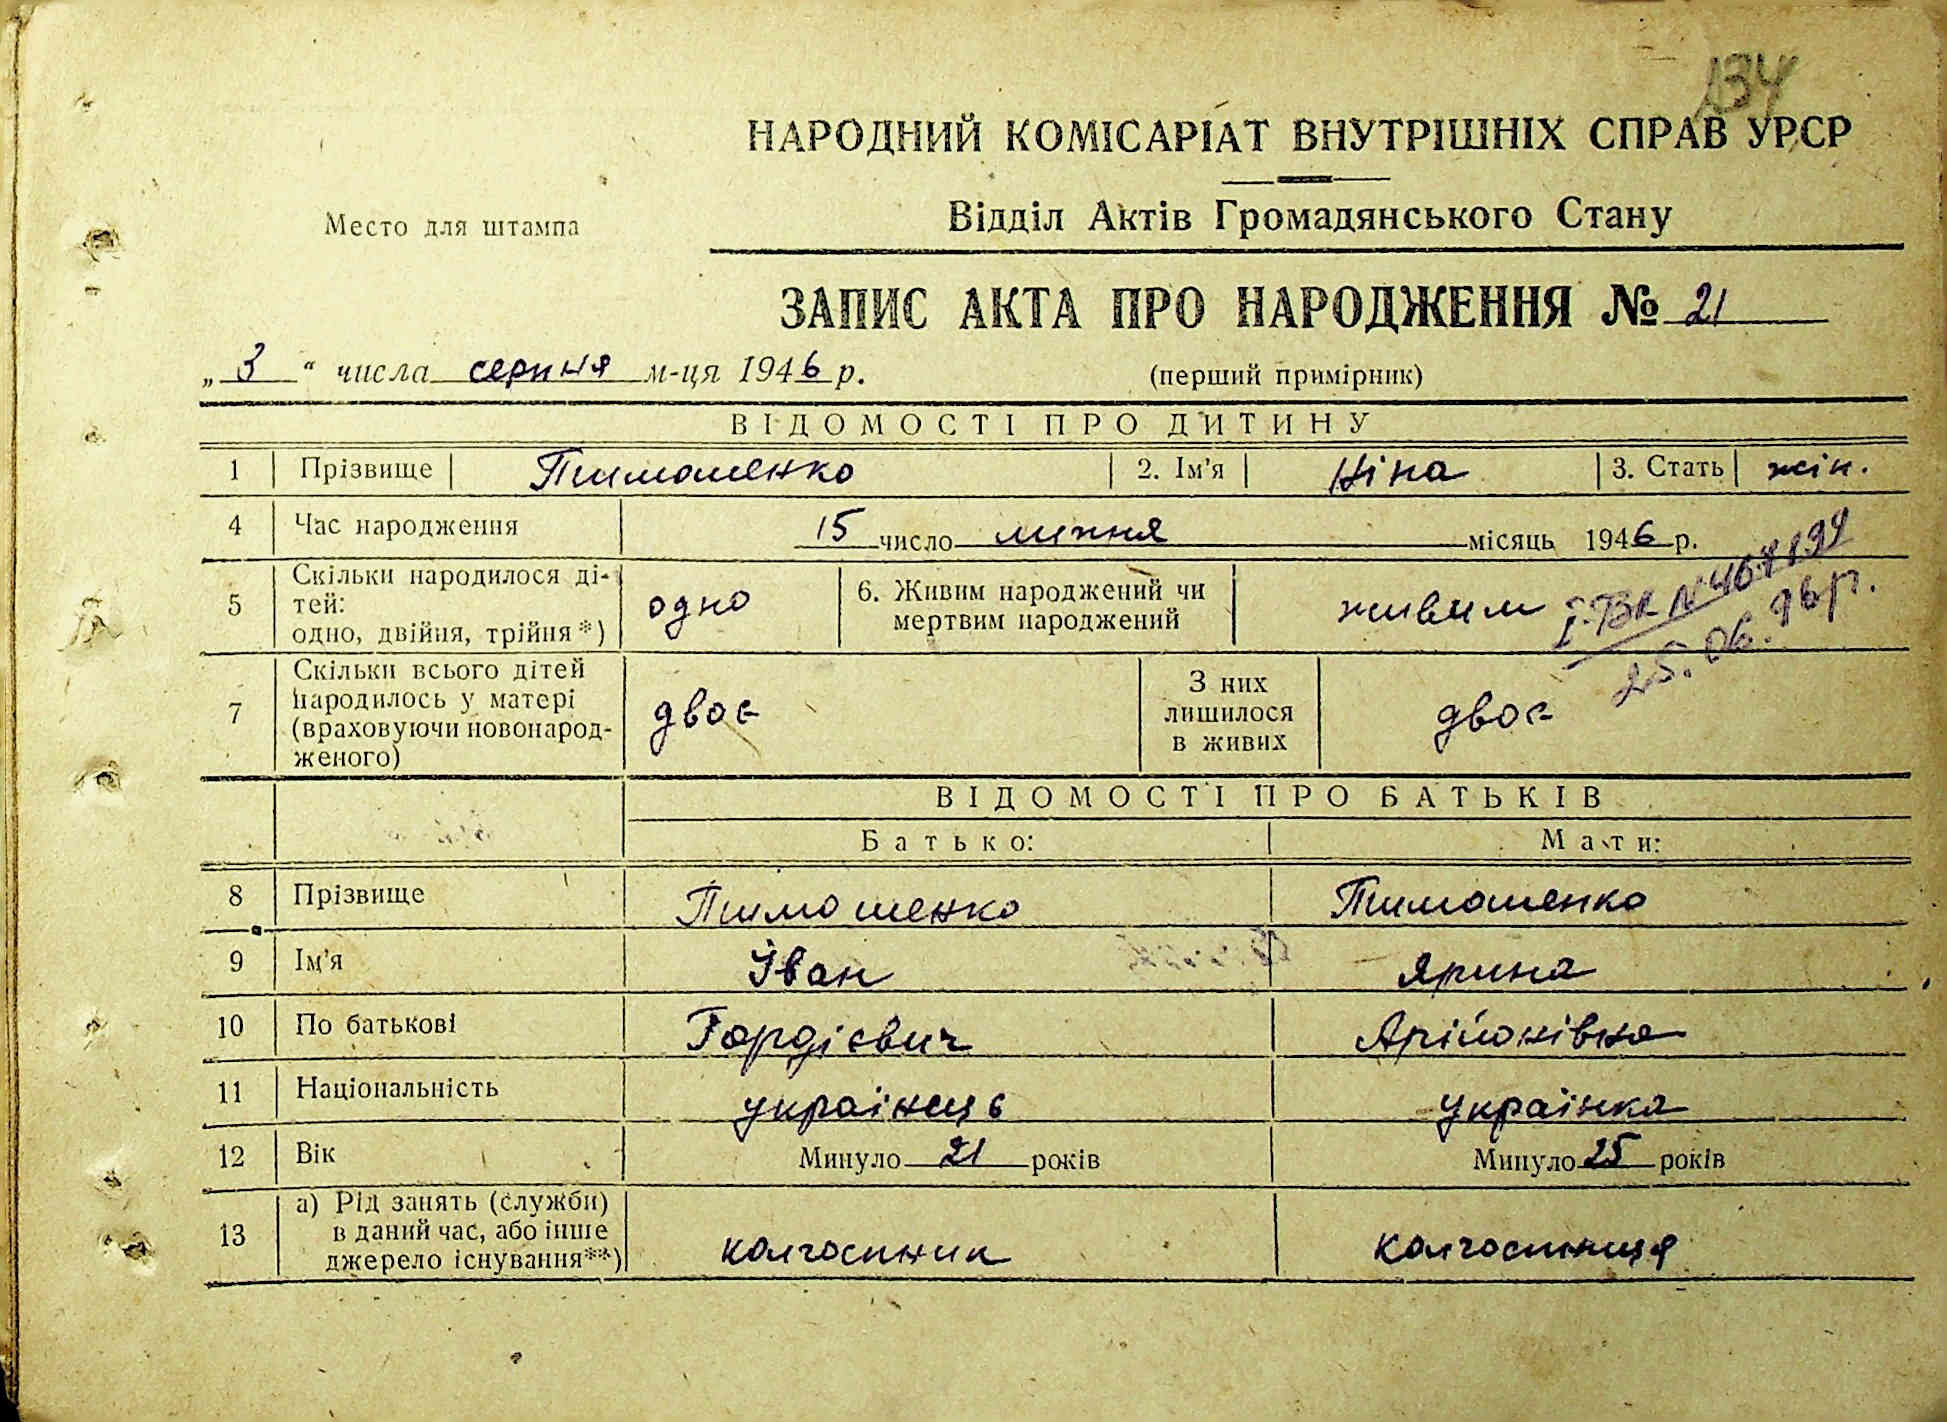 134
НАРОДНИЙ КОМІСАРІАТ ВНУТРІШНІХ СПРАВ УРСР
Место для штампа
Відділ Актів Громадянського Стану
ЗАПИС АКТА ПРО НАРОДЖЕННЯ № 21
„ 3 “ числа серпня м-ця 1946 р.
(перший примірник)
ВІДОМОСТІ ПРО ДИТИНУ
1 Прізвище Тимошенко 2. Ім'я Ніна 3. Стать жін.
4 Час народження 15 число липня місяць 1946 р.
5 Скільки народилося ді-
тей:
одно, двійня, трійня*) одно 6. Живим народжений чи
мертвим народжений живим
25.06.96р.
7 Скільки всього дітей
народилось у матері
(враховуючи новонарод-
женого) двоє З них
лишилося
в живих двоє
ВІДОМОСТІ ПРО БАТЬКІВ
Батько: Мати:
8 Прізвище Тимошенко Тимошенко
9 Ім'я Іван Ярина
10 По батькові Гордієвич
11 Національність українець українка
12 Вік Минуло 21 років Минуло 25 років
13 а) Рід занять (служби)
в даний час, або інше
джерело існування**) колгоспник колгоспниця